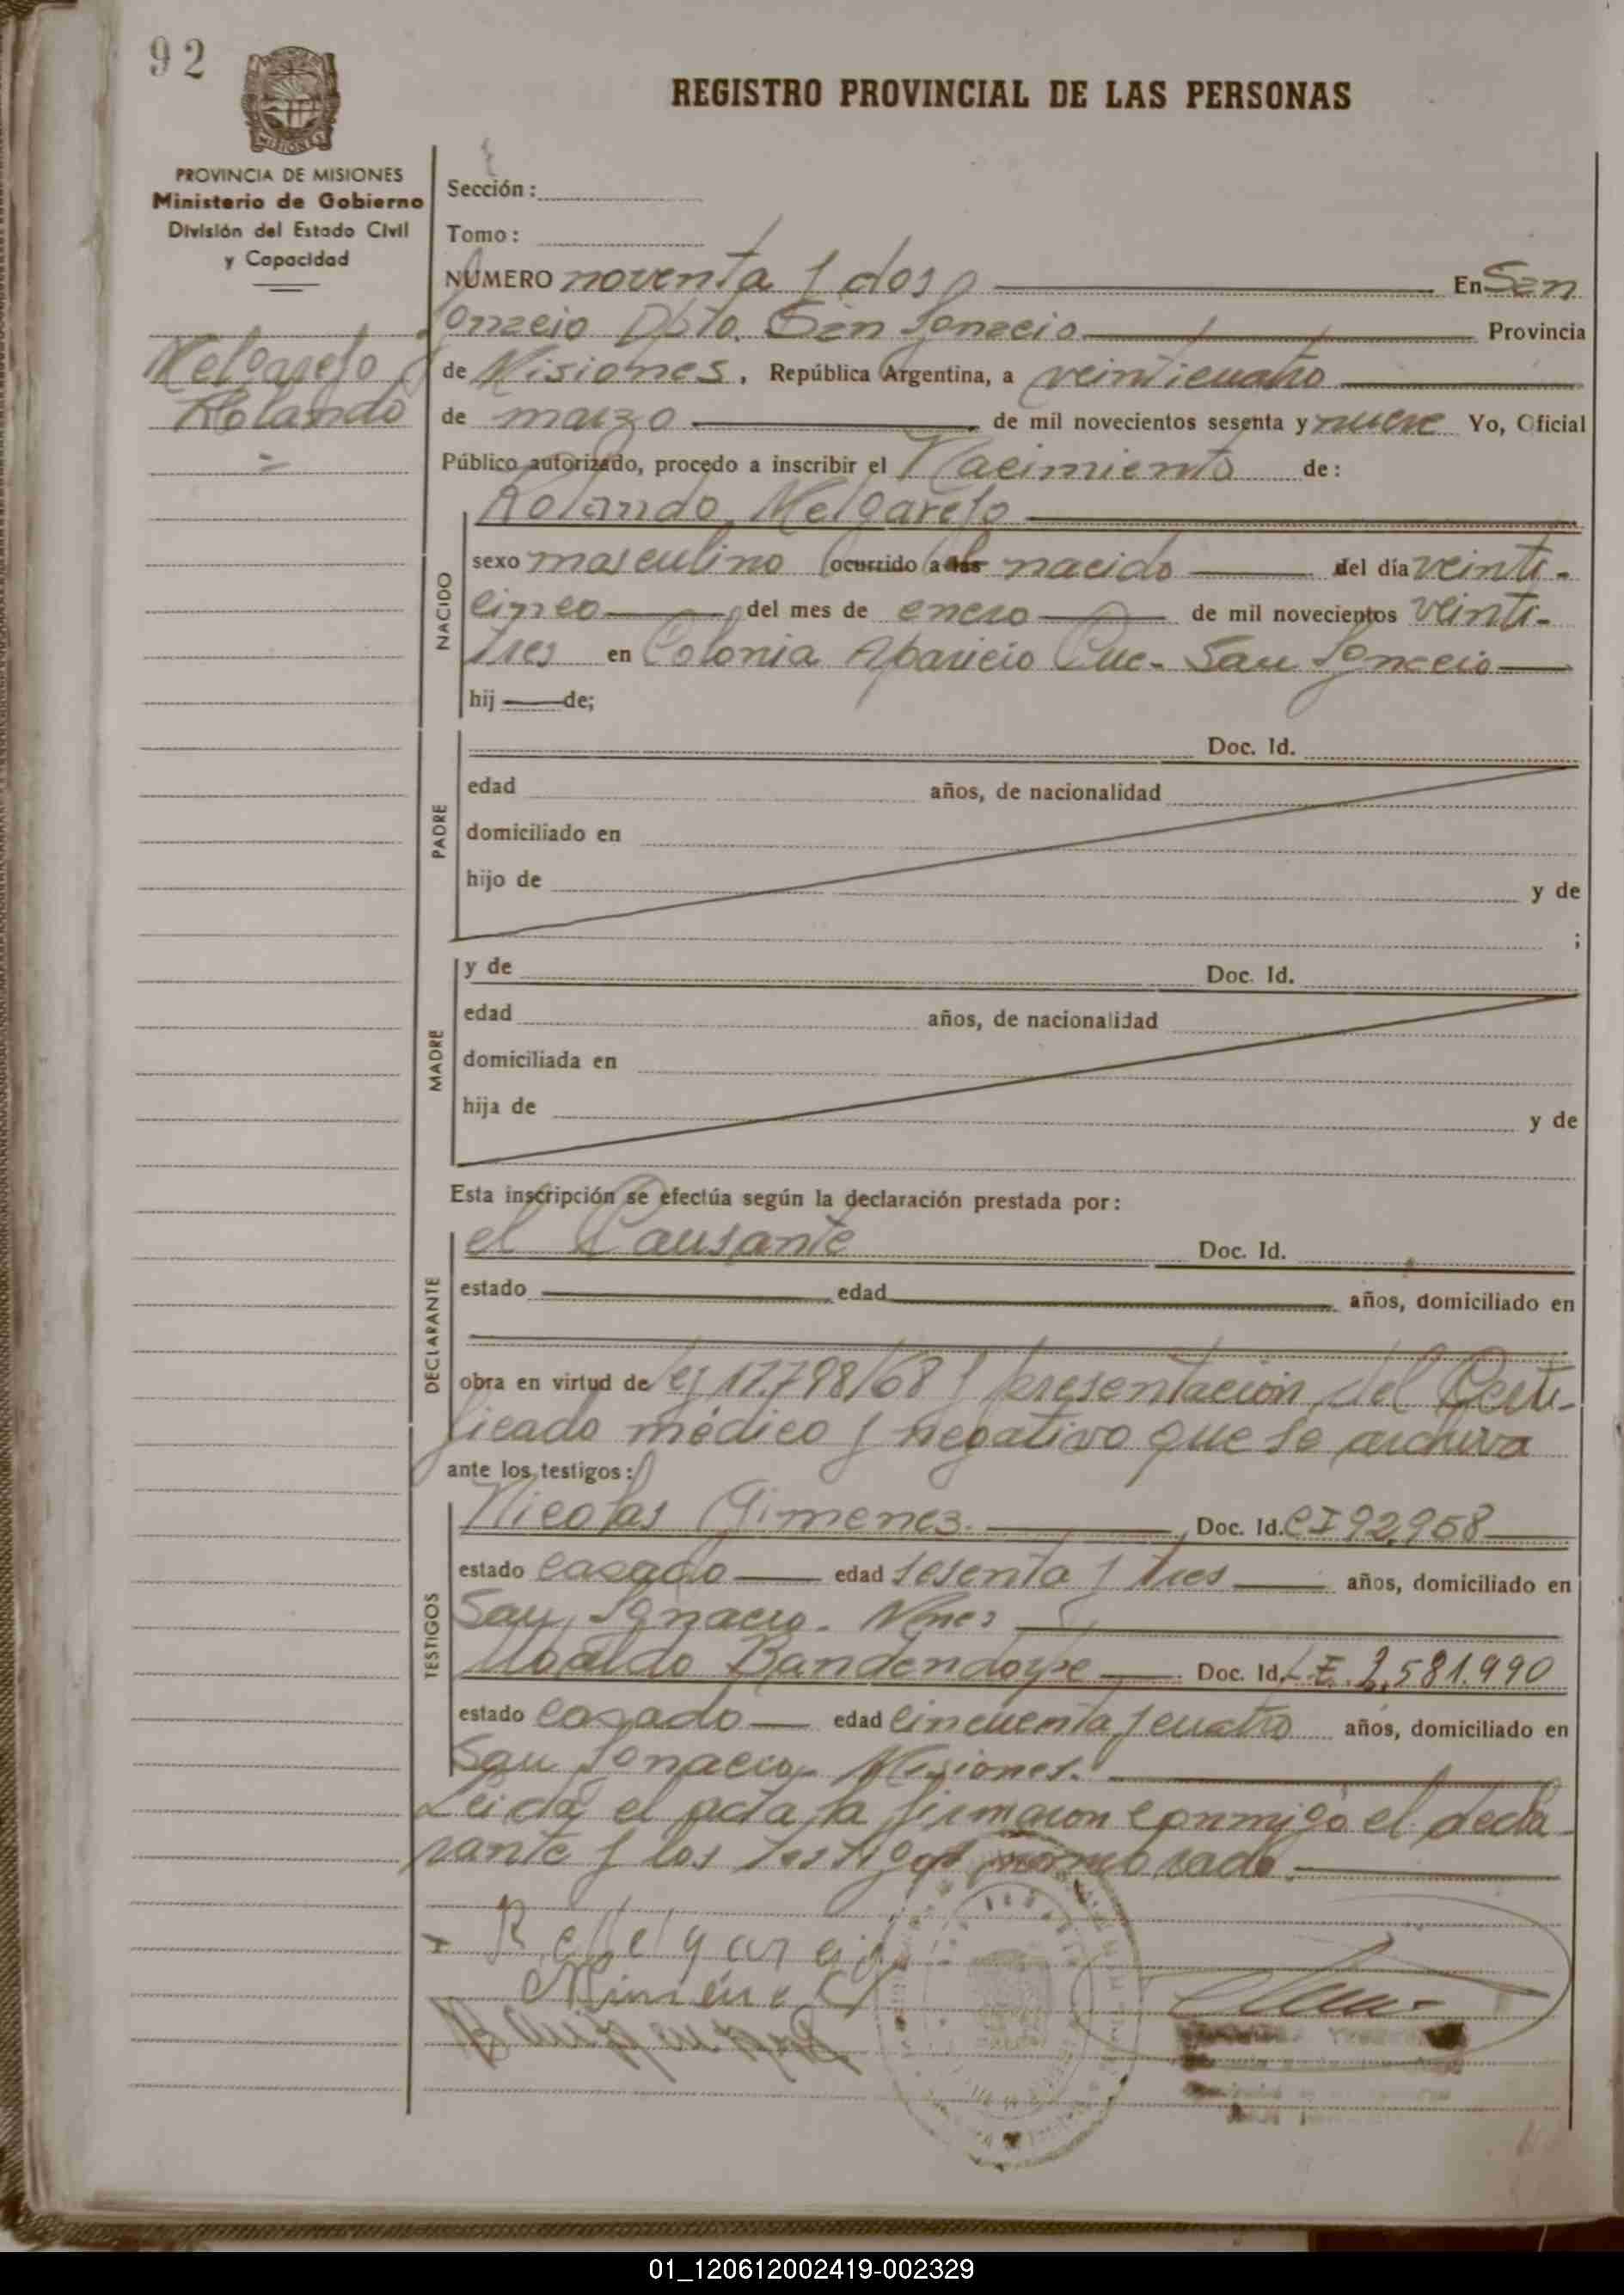 92
REGISTRO PROVINCIAL DE LAS PERSONAS
MISIONES
PROVINCIA DE MISIONES
Ministerio de Gobierno
División del Estado Civil
y Capacidad
Melgarejo
Rolando
Sección:
Tomo:
NÚMERO noventa y dos En San
Ignacio Dpto. San Ignacio Provincia
de Misiones, República Argentina, a veinticuatro
de marzo de mil novecientos sesenta y nueve Yo, Oficial
Público autorizado, procedo a inscribir el Nacimiento de:
NACIDO
Rolando Melgarejo
sexo masculino ocurrido a las nacido del día veinti-
cinco del mes de enero de mil novecientos veinti-
tres en Colonia Aparicio Cue- San Ignacio
hij de;
PADRE
Doc. Id.
edad años, de nacionalidad
domiciliado en
hijo de y de
;
MADRE
y de Doc. Id.
edad años, de nacionalidad
domiciliada en
hija de y de
Esta inscripción se efectúa según la declaración prestada por:
DECLARANTE
el Causante Doc. Id.
estado edad años, domiciliado en
obra en virtud de ley 17.798/68 y presentación del Certi-
ficado médico y negativo que se archiva
ante los testigos:
TESTIGOS
Nicolas Gimenez. Doc. Id. CI 92,968
estado casado edad sesenta y tres años, domiciliado en
San Ignacio. Mnes
Ubaldo Bandendorpe Doc. Id. L.E. 2,581.990
estado casado edad cincuenta y cuatro años, domiciliado en
San Ignacio, Misiones.
Leida el acta la firmaron conmigo el decla
rante y los testigos nombrado.
R Melgarejo
01_120612002419-002329